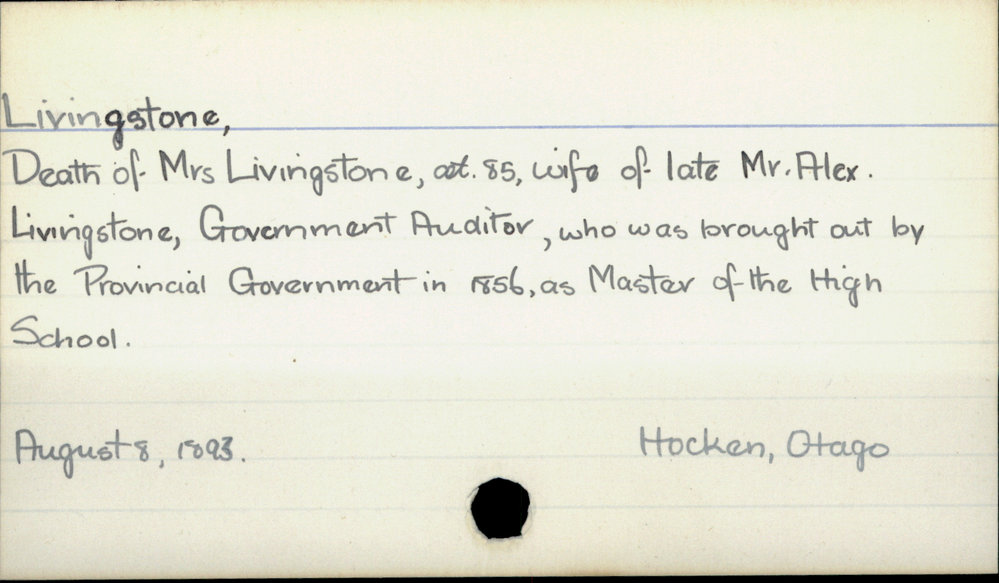 Livingstone,
Death of Mrs Livingstone, aet. 85, wife of late Mr. Alex.
Livingstone, Government Auditor, who was brought out by
the Provincial Government in 1856, as Master of the High
School.
August 8, 1893. Hocken, Otago